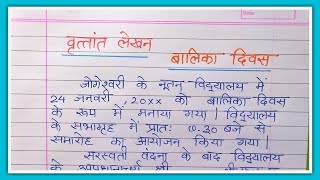 वृत्तांत लेखन
बालिका दिवस
जोगेश्वरी के नूतन विद्यालय में
24 जनवरी, 20xx को बालिका दिवस
के रूप में मनाया गया। विद्यालय
के सभागृह में प्रातः ७.३० बजे से
समारोह का आयोजन किया गया।
सरस्वती वंदना के बाद विद्यालय
के